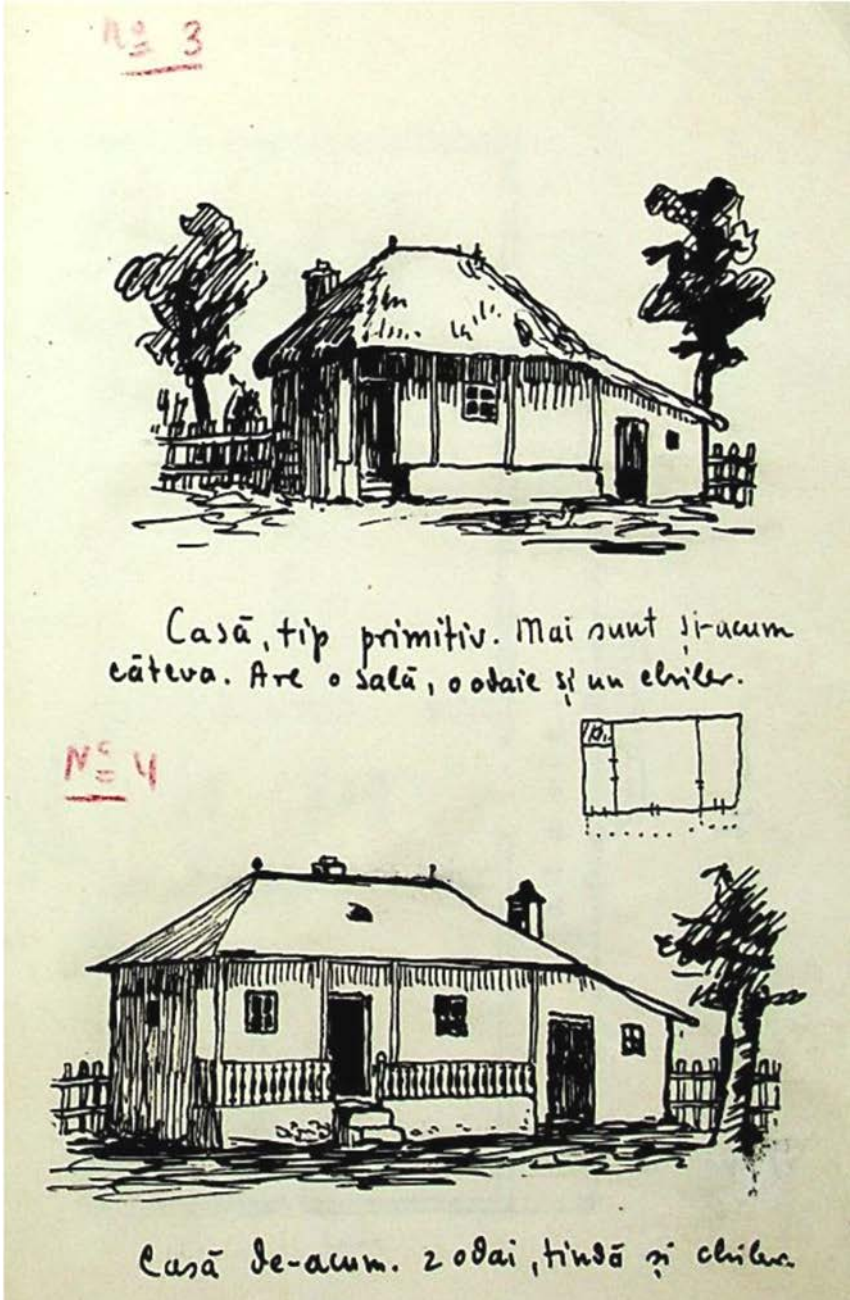 No 3
Casă, tip primitiv. Mai sunt și-acum
câteva. Are o sală, o odaie și un chiler.
No 4
Casă de-acum. 2 odăi, tindă și chiler.